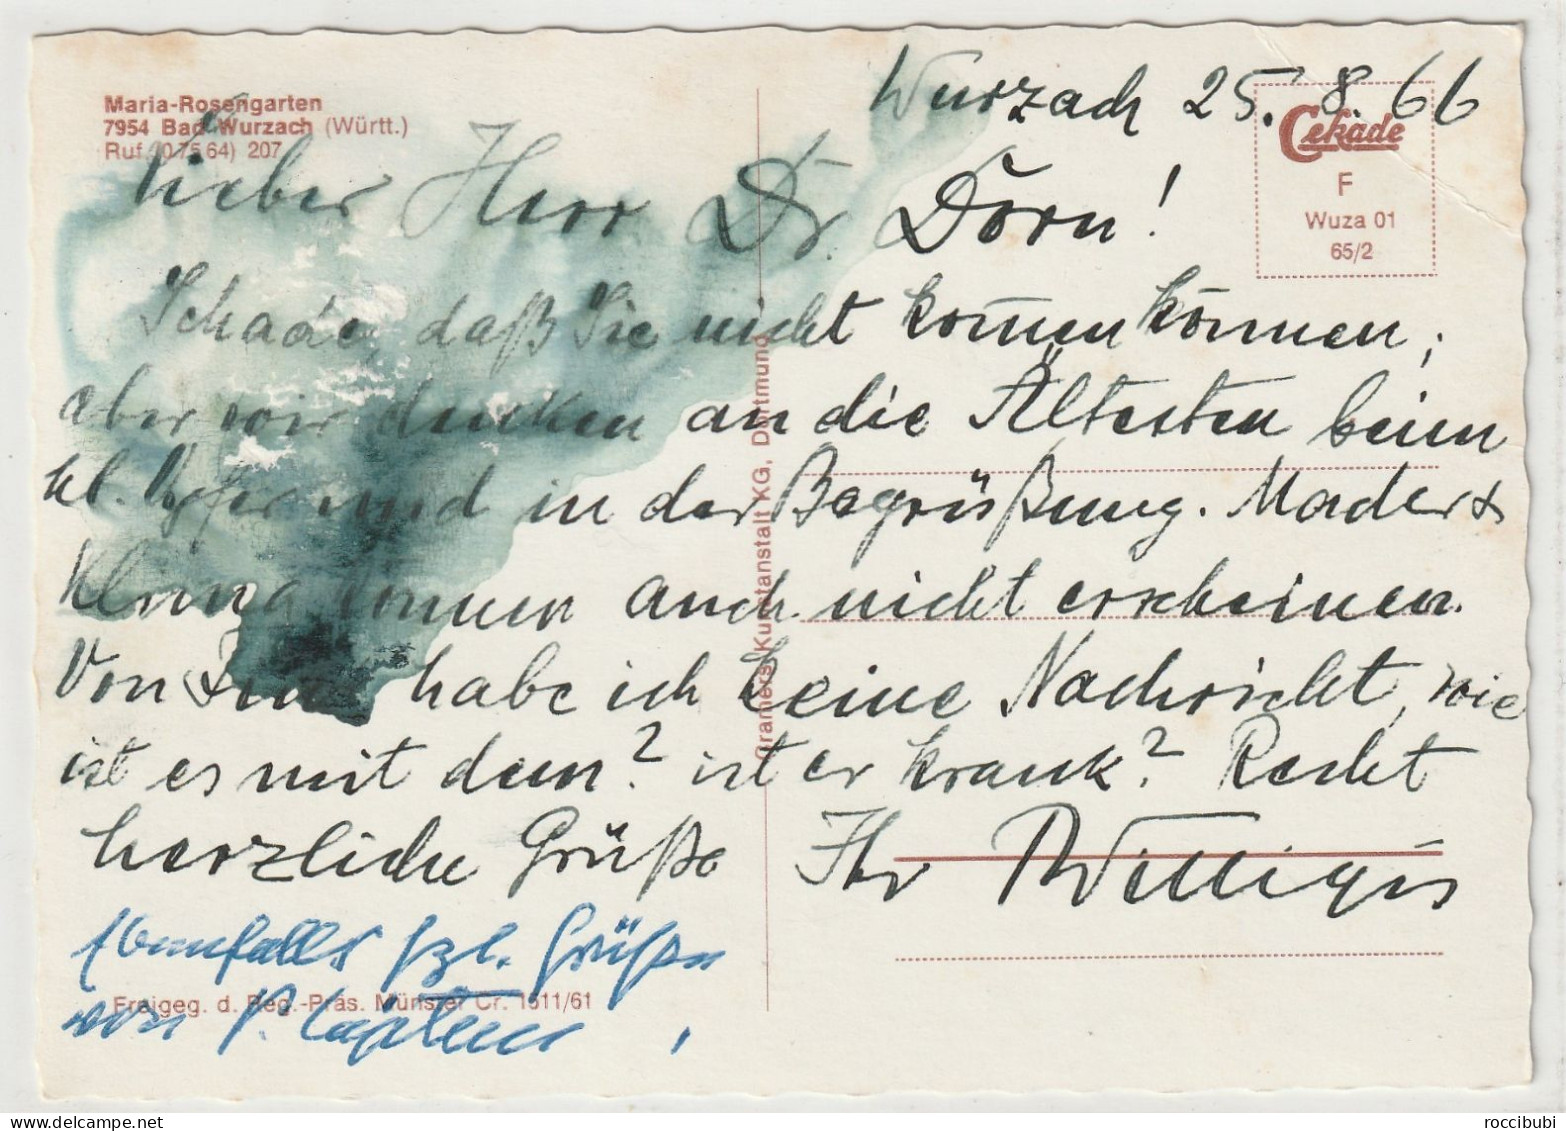 Maria-Rosengarten
7954 Bad Wurzach (Württ.)
Ruf (0 75 64) 207
Wurzach 25. 8. 66
Cekade
F
Wuza 01
65/2
Lieber Herr Dr. Dorn!
Schade, daß Sie nicht kom̄en können;
aber wir denken an die Ältesten beim
hl. Opfer und in der Begrüßung. Mader &
können auch nicht erscheinen.
Von habe ich keine Nachricht, wie
ist es mit dem? ist er krank? Recht
herzliche Grüße Ihr Willigis
Ebenfalls hzl. Grüße
von P.
Freigeg. d. Reg.-Präs. Münster Cr. 1511/61
Cramers Kunstanstalt KG, Dortmund
roccibubi